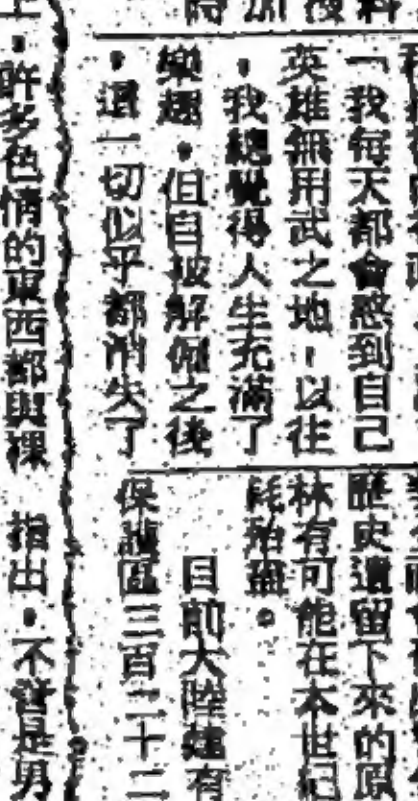 「我每天都會感到自己
英雄無用武之地，以往
，我總覺得人生充滿了
樂趣，但自被解僱之後
，這一切似乎都消失了
歷史遺留下來的原
林有可能在本世紀
耗殆盡。
目前大陸建有
保護區三百二十二
上，許多色情的東西都與裸
指出，不管是男